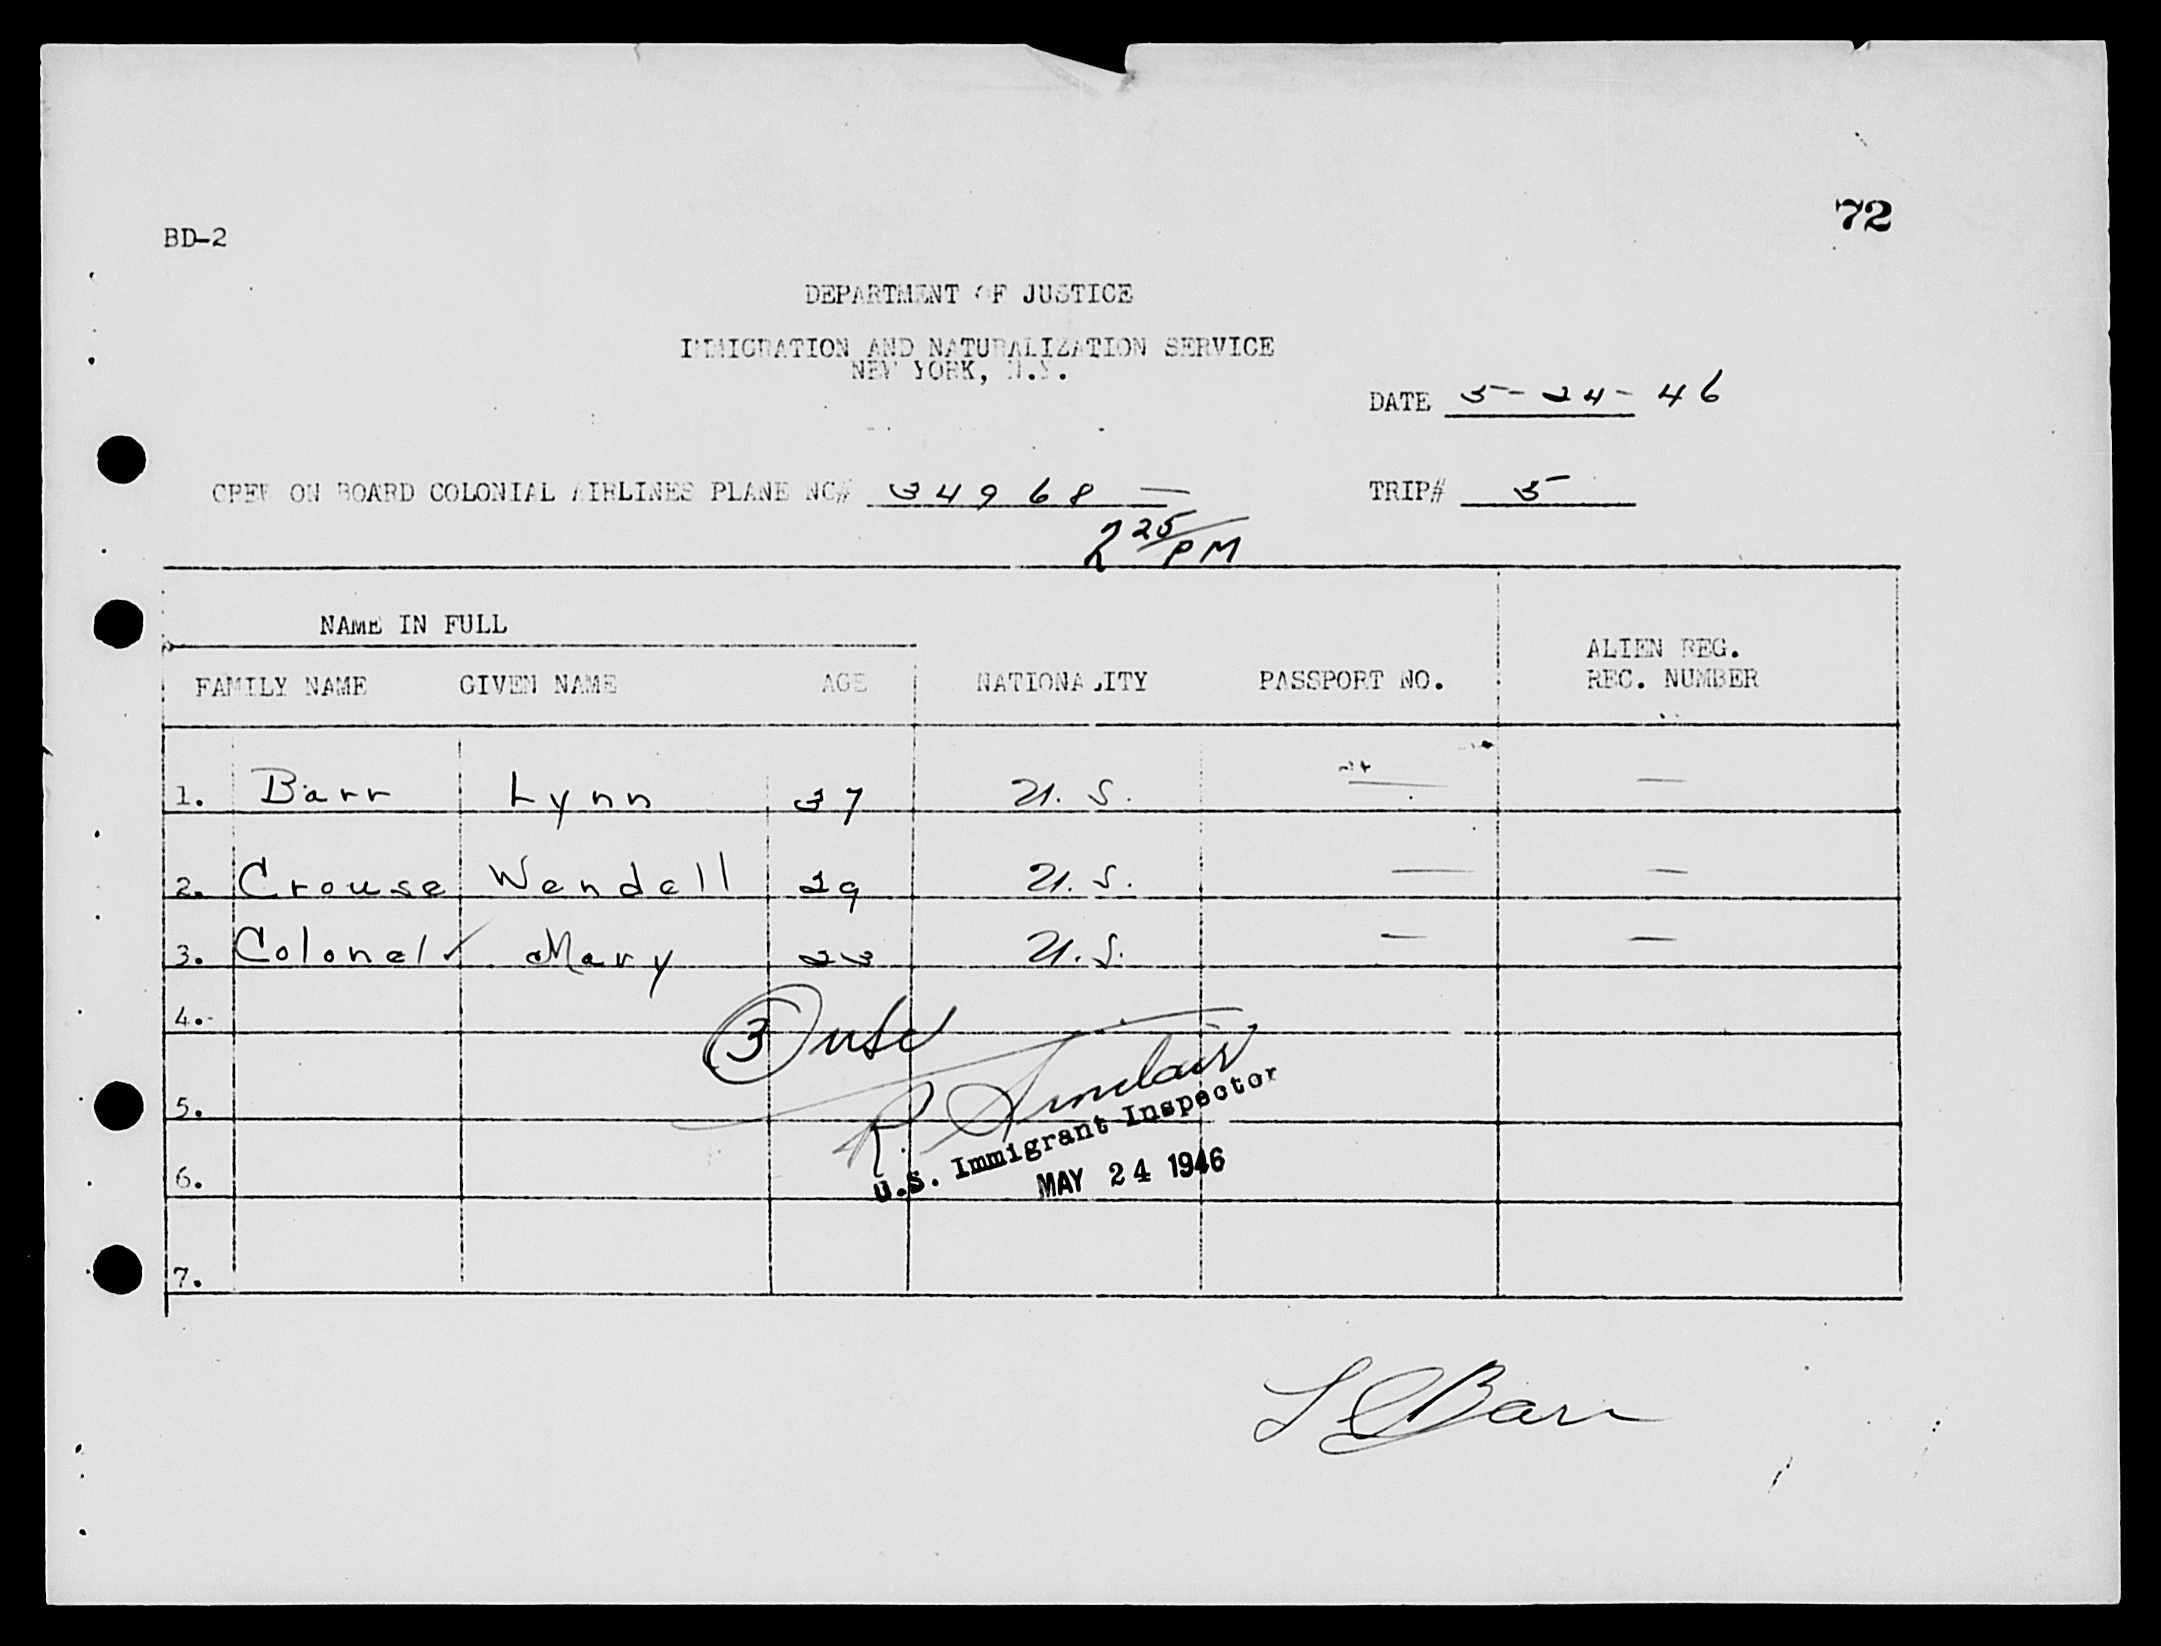 72
BD-2
DEPARTMENT OF JUSTICE
IMMIGRATION AND NATURALIZATION SERVICE
NEW YORK, N.Y.
DATE 5-24-46
CREW ON BOARD COLONIAL AIRLINES PLANE NC# 34968 — TRIP# 5
2 25/PM
NAME IN FULL
FAMILY NAME GIVEN NAME AGE NATIONALITY PASSPORT NO. ALIEN REG. REC. NUMBER
1. Barr Lynn 37 U.S. — —
2. Crouse Wendell 29 U.S. — —
3. Colonel ✓ Mary 23 U.S. — —
4.
3 USC
5.
R. Sinclair
U.S. Immigrant Inspector
6.
MAY 24 1946
7.
L E Barr